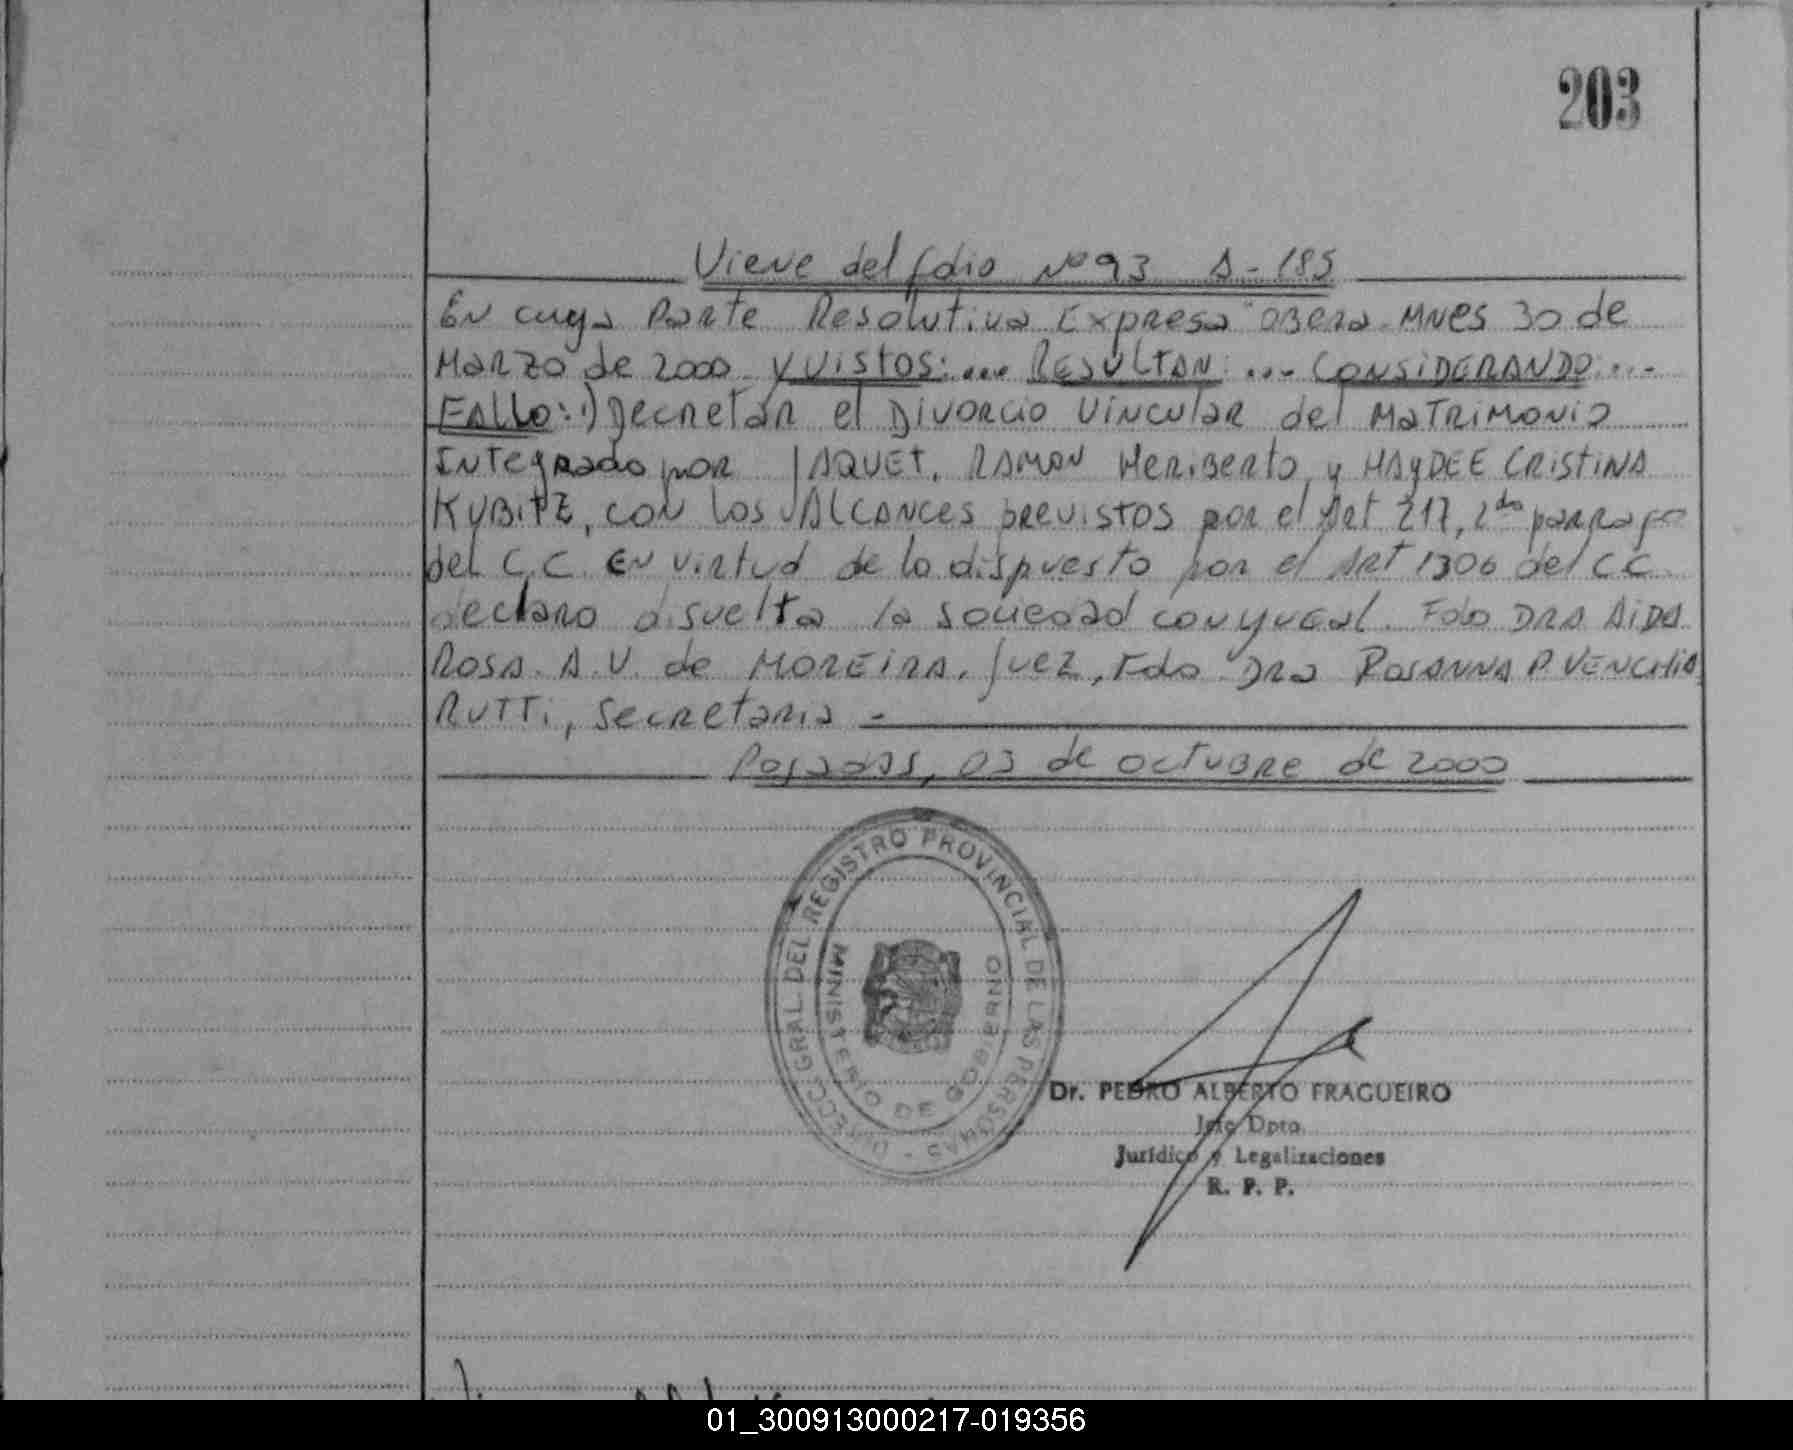 203
Viene del folio Nº 93 A-185
En cuya Parte Resolutiva Expresa "OBERA. MNES 30 de
MARZO de 2000 Y VISTOS:... RESULTAN: ... CONSIDERANDO:...
FALLO: 1) Decretar el Divorcio Vincular del MATRIMONIO
Integrado por JAQUET, RAMON HERIBERTO, y HAYDEE CRISTINA
KUBITZ, con los ALCANCES previstos por el Art 217, 2do parrafo
del C.C. En virtud de lo dispuesto por el Art 1306 del C.C.
declaro disuelta la sociedad conyugal. Fdo DRA AIDA
ROSA A.V. de MOREIRA, Juez, Fdo. Dra ROSANNA P. VENCHIA
RUTTI, Secretaria -
Posadas, 03 de octubre de 2000
DIRECC. GRAL. DEL REGISTRO PROVINCIAL DE LAS PERSONAS
MINISTERIO DE GOBIERNO
Dr. PEDRO ALBERTO FRAGUEIRO
Jefe Dpto.
Jurídico y Legalizaciones
R. P. P.
01_300913000217-019356